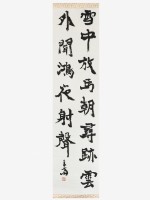 雪中放馬朝尋跡雲
外聞鴻夜射聲